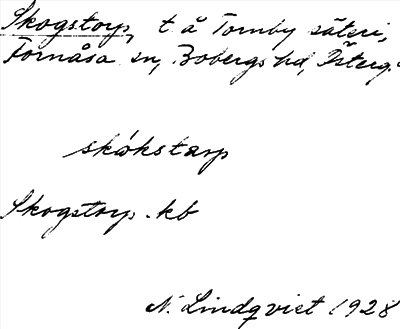 Skogstorp, t å Tornby säteri,
Fornåsa sn, Bobergs hd, Österg.
skókstarp
Skogstorp. kb
N. Lindqvist 1928